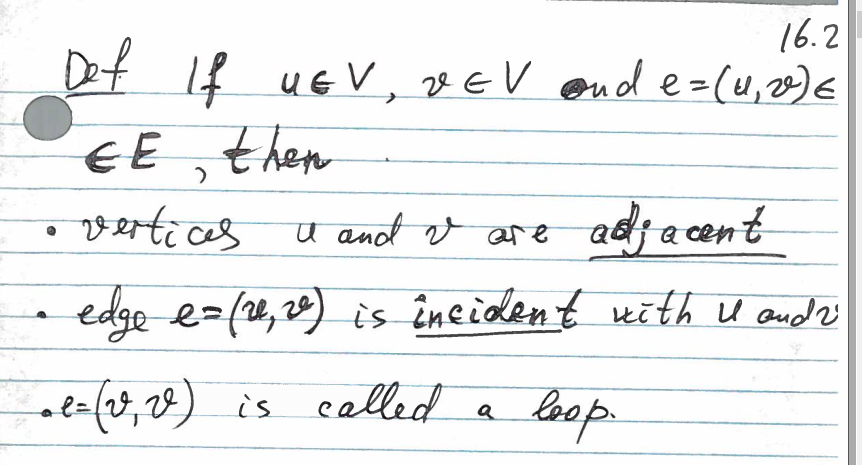 16.2
Def If u ∈ V, v ∈ V and e = (u, v) ∈
∈ E, then
• vertices u and v are adjacent
• edge e = (u, v) is incident with u and v
• e = (v, v) is called a loop.